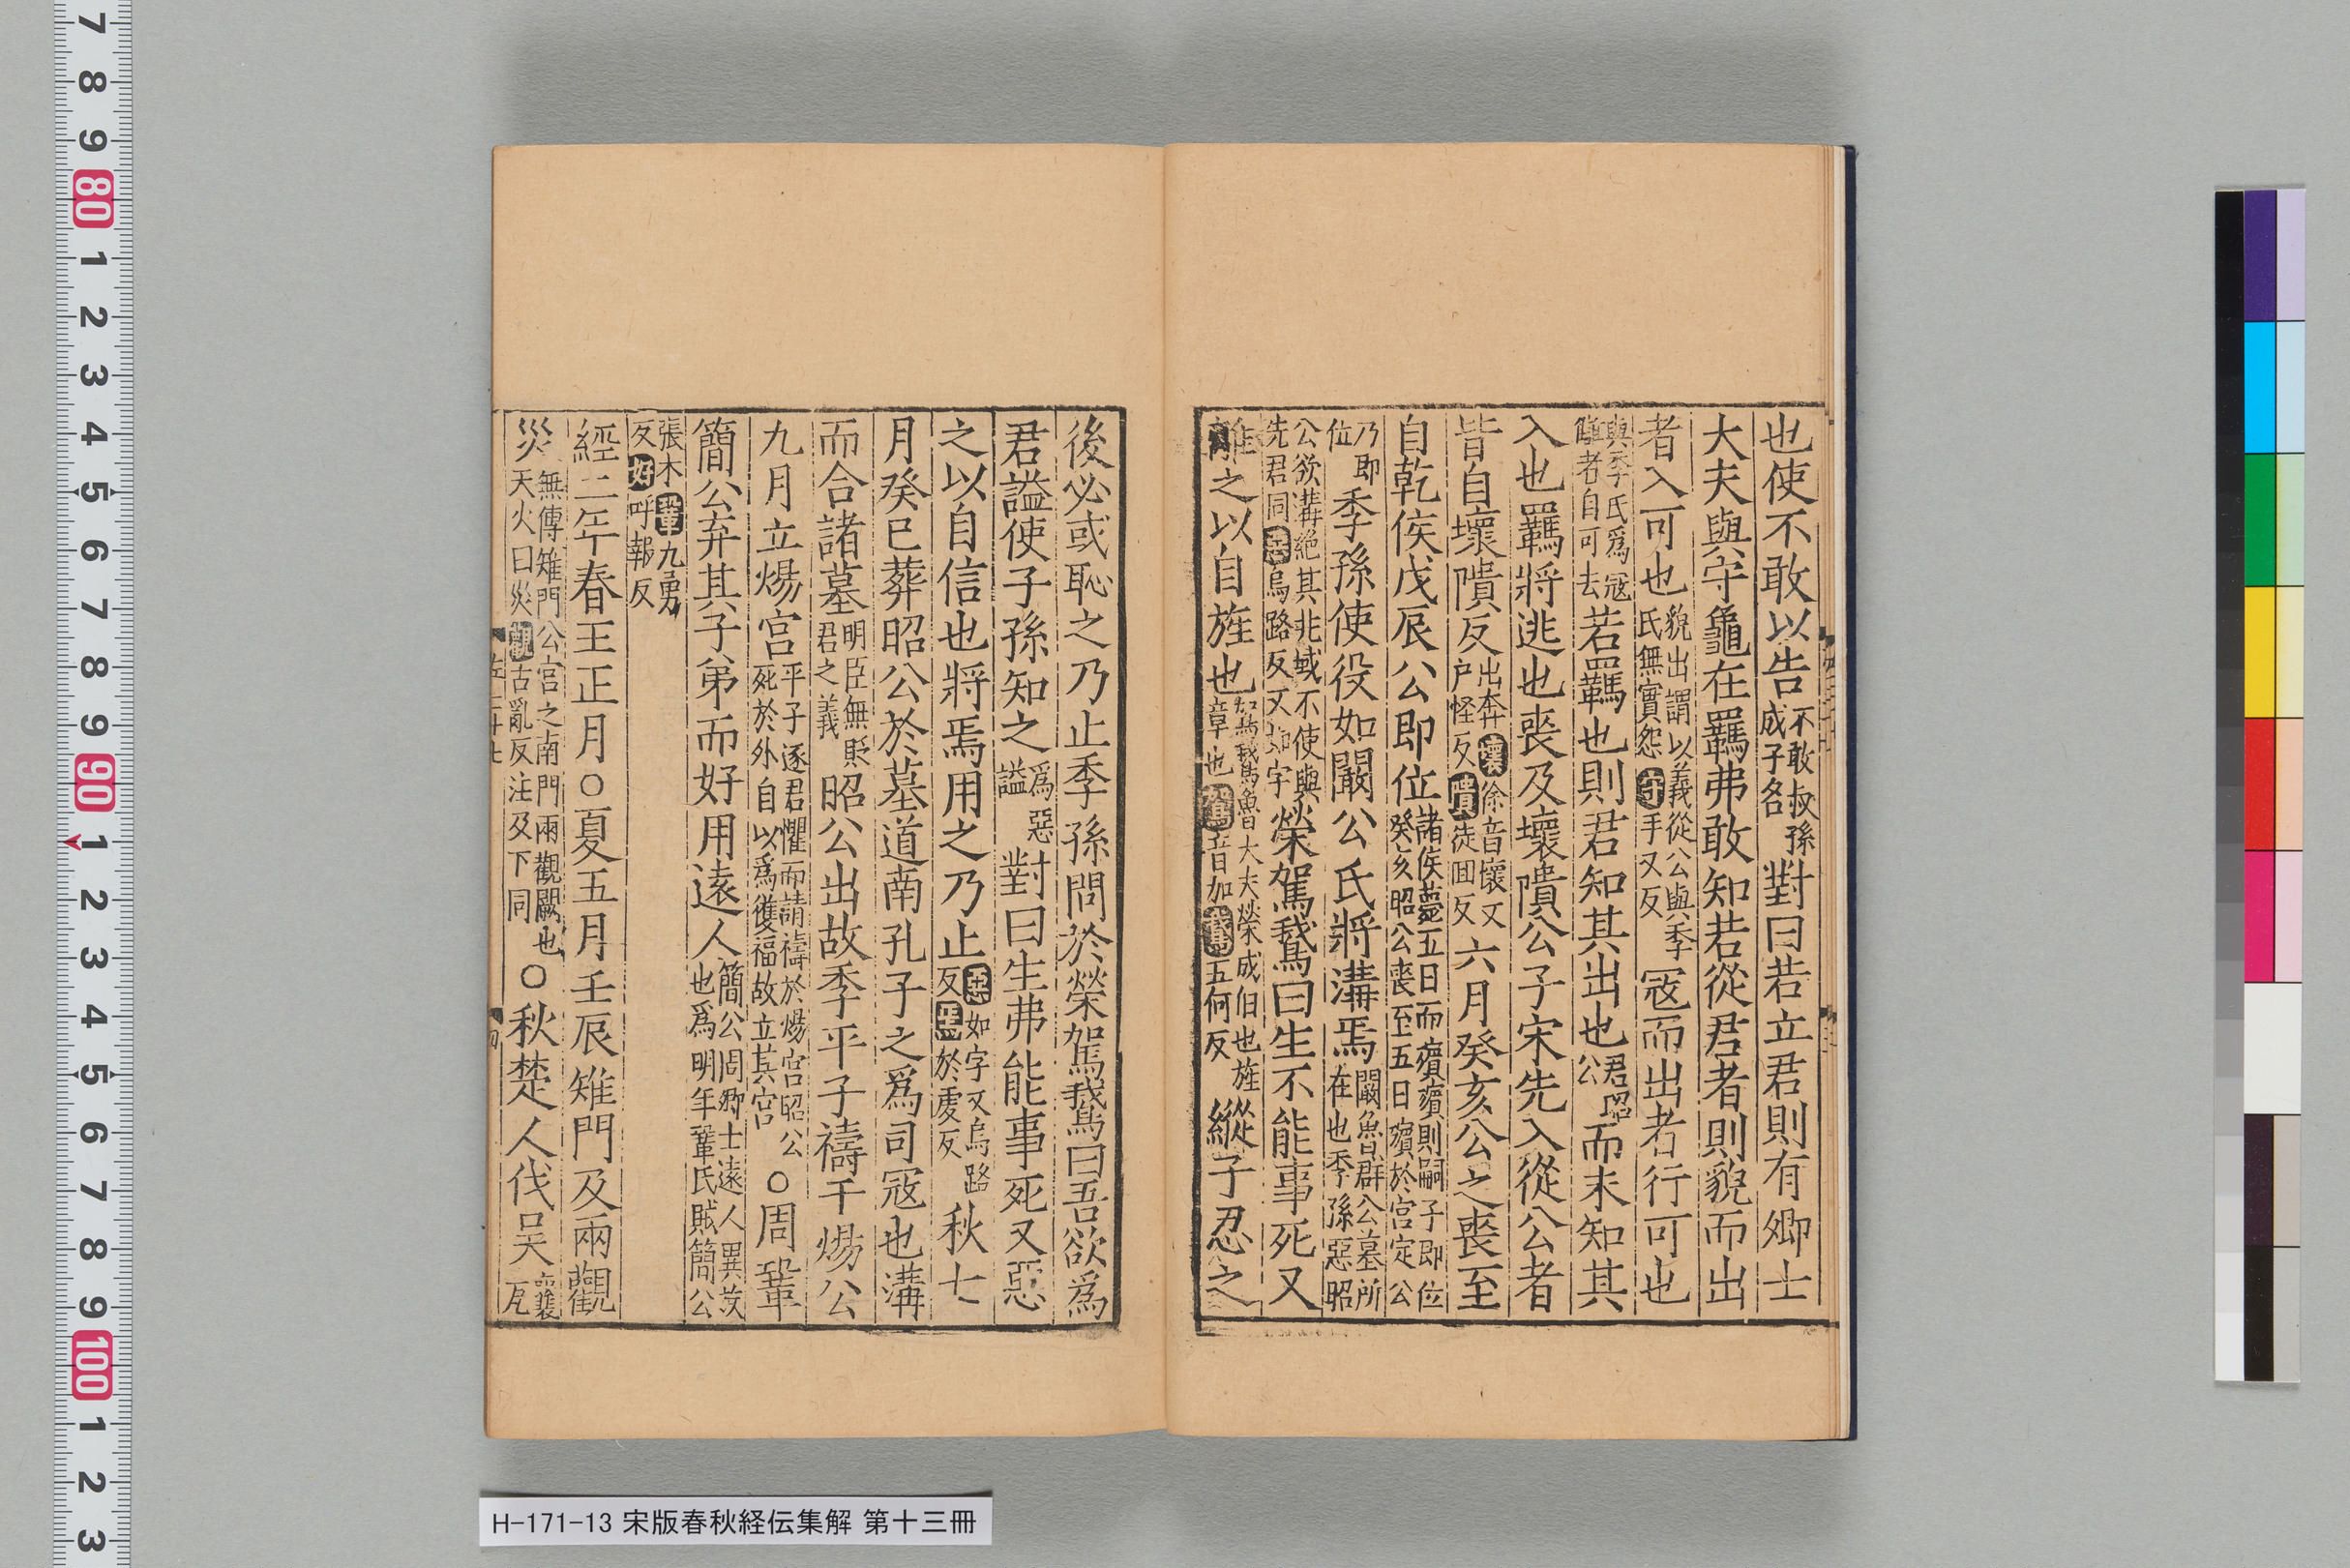 也使不敢以告不敢叔孫成子名對曰若立君則有卿士
大夫與守龜在羈弗敢知若從君者則貌而出
者入可也貌出謂以義從公與季氏無實怨守手又反寇而出者行可也
與季氏為寇讎者自可去若羈也則君知其出也君昭公而未知其
入也羈將逃也喪及壞隤公子宋先入從公者
皆自壞隤反出奔壞徐音懷又戶怪反隤徒回反六月癸亥公之喪至
自乾侯戊辰公即位諸侯薨五日而殯殯則嗣子即位癸亥昭公喪至五日殯於宮定公
乃即位季孫使役如闞公氏將溝焉闞魯群公墓所在也季孫惡昭
公欲溝絕其兆域不使與先君同惡烏路反又如字榮駕鵞曰生不能事死又
離之以自旌也駕鵞魯大夫榮成伯也旌章也駕音加鵞五何反縱子忍之
後必或恥之乃止季孫問於榮駕鵞曰吾欲為
君謚使子孫知之為惡謚對曰生弗能事死又惡
之以自信也將焉用之乃止惡如字又烏路反焉於虔反秋七
月癸巳葬昭公於墓道南孔子之為司寇也溝
而合諸墓明臣無貶君之義昭公出故季平子禱于煬公
九月立煬宮平子逐君懼而請禱於煬宮昭公死於外自以為獲福故立其宮○周鞏
簡公弃其子弟而好用遠人簡公周卿士遠人異族也為明年鞏氏賊簡公
張本鞏九勇反好呼報反
經二年春王正月○夏五月壬辰雉門及兩觀
災無傳雉門公宮之南門兩觀闕也天火曰災觀古亂反注及下同○秋楚人伐吳囊瓦
H-171-13 宋版春秋経伝集解 第十三冊
7 8 9 80 1 2 3 4 5 6 7 8 9 90 1 2 3 4 5 6 7 8 9 100 1 2 3